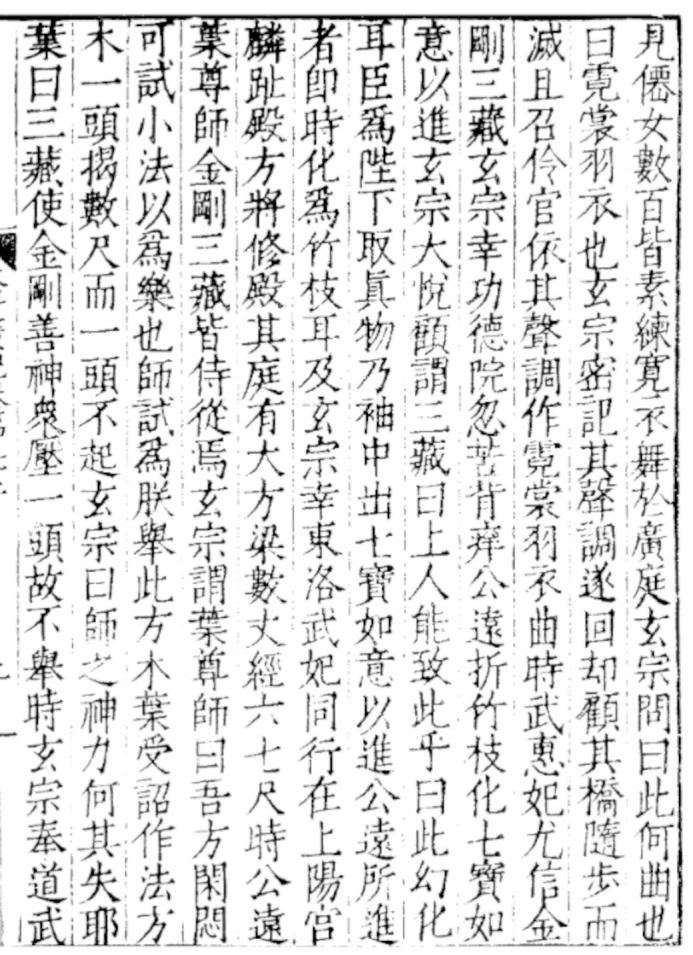 見僊女數百皆素練寛衣舞於廣庭玄宗問曰此何曲也
曰霓裳羽衣也玄宗密記其聲調遂回却顧其橋隨步而
滅且召伶官依其聲調作霓裳羽衣曲時武惠妃尤信金
剛三藏玄宗幸功德院忽苦背痒公遠折竹枝化七寶如
意以進玄宗大悅顧謂三藏曰上人能致此乎曰此幻化
耳臣爲陛下取眞物乃袖中出七寶如意以進公遠所進
者即時化爲竹枝耳及玄宗幸東洛武妃同行在上陽宮
麟趾殿方將修殿其庭有大方梁數丈經六七尺時公遠
葉尊師金剛三藏皆侍從焉玄宗謂葉尊師曰吾方閑悶
可試小法以爲樂也師試爲朕舉此方木葉受詔作法方
木一頭揭數尺而一頭不起玄宗曰師之神力何其失耶
葉曰三藏使金剛善神衆壓一頭故不舉時玄宗奉道武